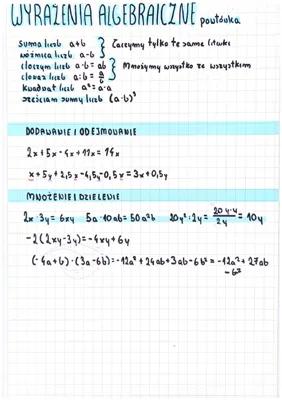 WYRAŻENIA ALGEBRAICZNE powtórka
suma liczb a+b } Łączymy tylko te same literki
różnica liczb a-b
iloczyn liczb a·b = ab } Mnożymy wszystko ze wszystkim
iloraz liczb a:b = a/b
kwadrat liczb a² = a·a
sześcian sumy liczb (a·b)³
DODAWANIE I ODEJMOWANIE
2x+5x-4x+11x=14x
x+5y+2,5x-4,5y-0,5x=3x+0,5y
MNOŻENIE I DZIELENIE
2x·3y=6xy 5a·10ab=50a²b 20y²:2y= 20y·y/2y =10y
-2(2xy-3y)=-4xy+6y
(-4a+b)·(3a-6b)=-12a²+24ab+3ab-6b²=-12a²+27ab
-6²